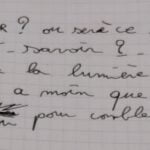 ? ou serà ce
savoir ?
à la lumière
a moin que
pour comble